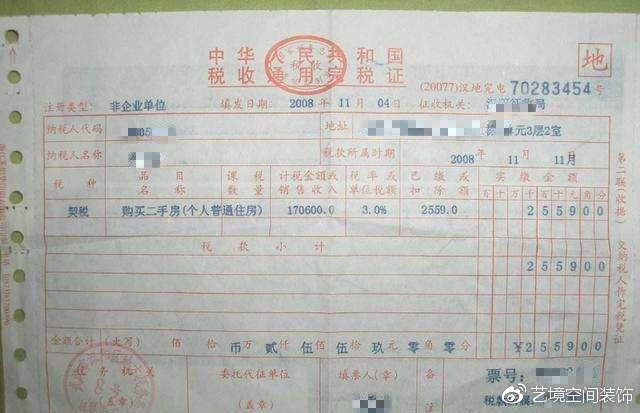 中华人民共和国
税收通用完税证
地
(20077)汉地完电 70283454号
注册类型: 非企业单位 填发日期: 2008年 11月 04日 征收机关:
纳税人代码 地址 单元3层2室
纳税人名称 税款所属时期 2008年 11月 11月
税种 品目名称 课税数量 计税金额或销售收入 税率或单位税额 已缴或扣除额 实缴金额 百十万千百十元角分
契税 购买二手房(个人普通住房) 170600.0 3.0% 2559.0 ¥255900
税款小计 ¥255900
金额合计 (大写) 佰 拾 币万 贰仟 伍佰 伍拾 玖元 零角 零分 ¥255900
税务机关 (盖章)
委托代征单位 (盖章)
填票人(章)
备注
票号:
税款
第二联(收据)交纳税人作完税凭证
艺境空间装饰